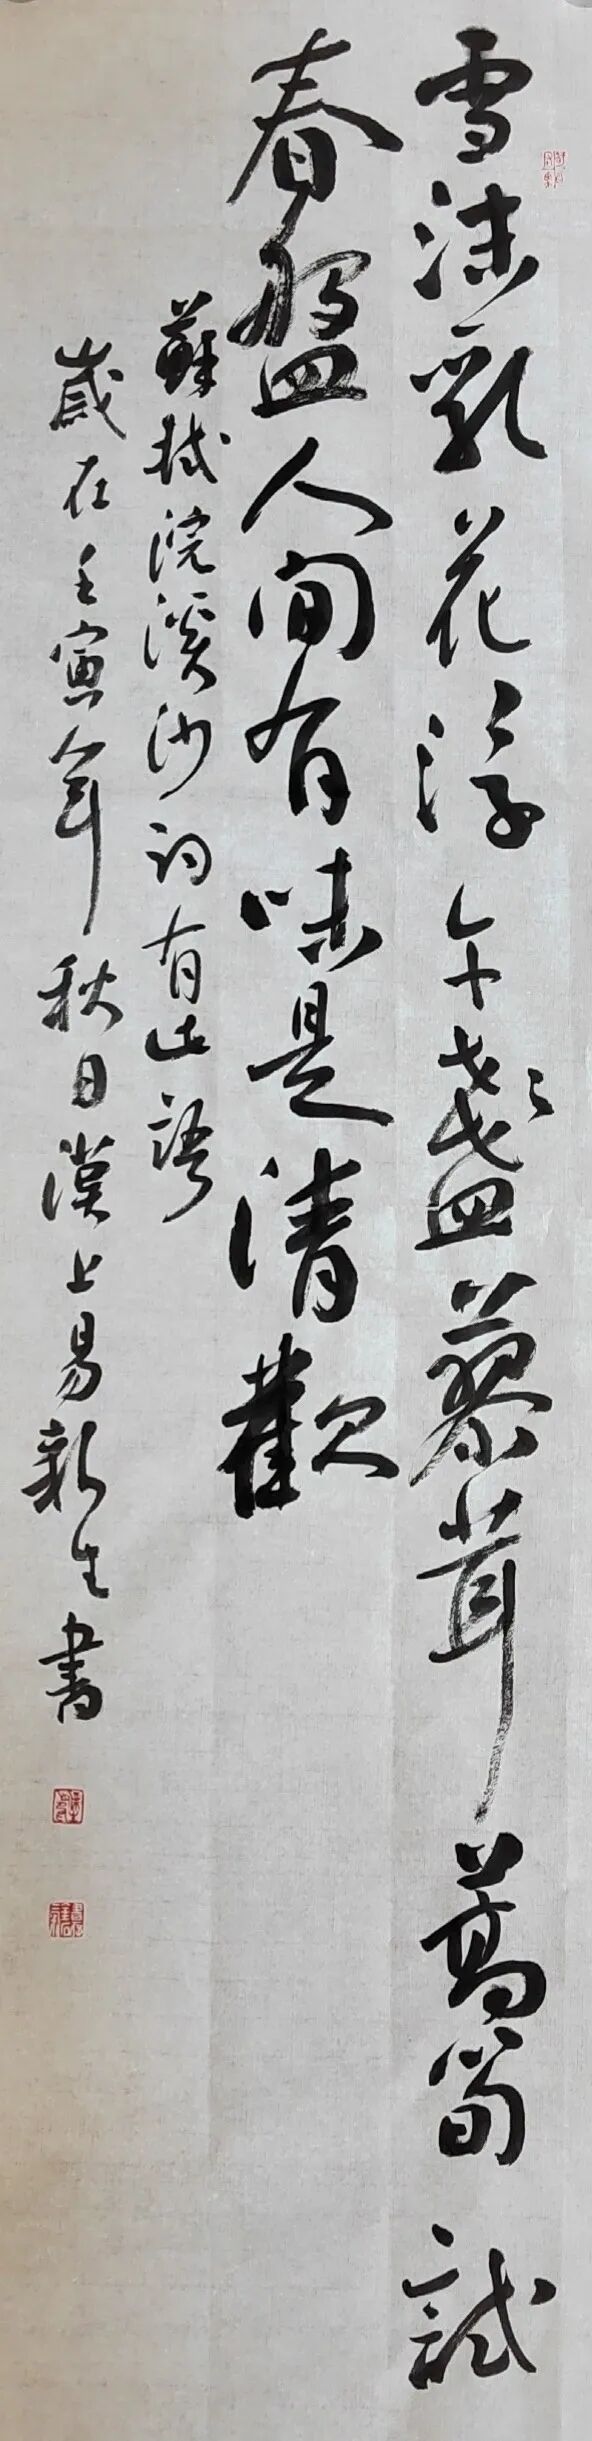 雪沫乳花浮午盞蓼茸蒿筍試
春盤人间有味是清歡
蘇軾浣溪沙词有此語
歲在壬寅年秋日漢上易新生書